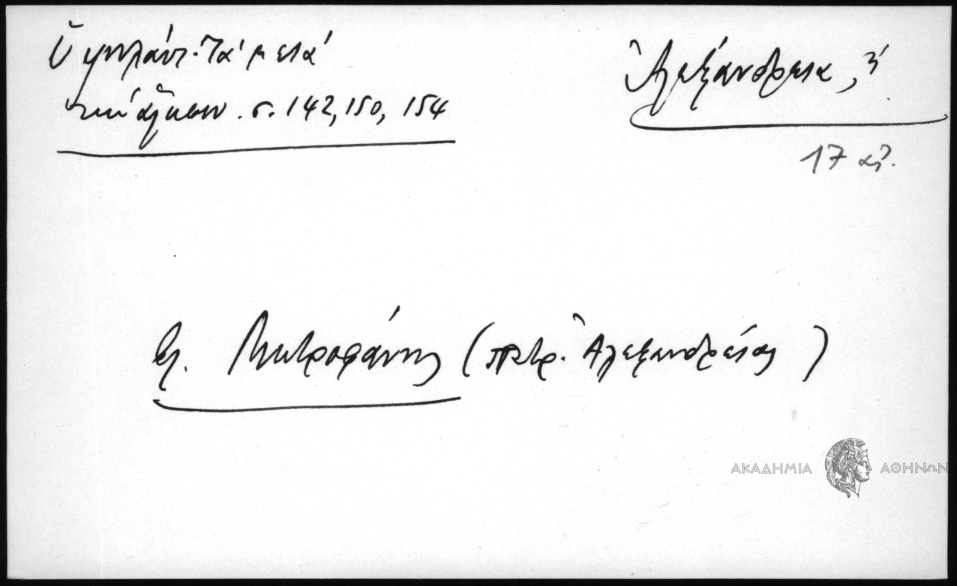 Ὑψηλάντ. Τὰ μετὰ
τὴν ἅλωσιν. σ. 142, 150, 154
Ἀλεξάνδρεια, ἡ
17 αἰ.
βλ. Μητροφάνης (πατρ. Ἀλεξανδρείας)
ΑΚΑΔΗΜΙΑ ΑΘΗΝΩΝ